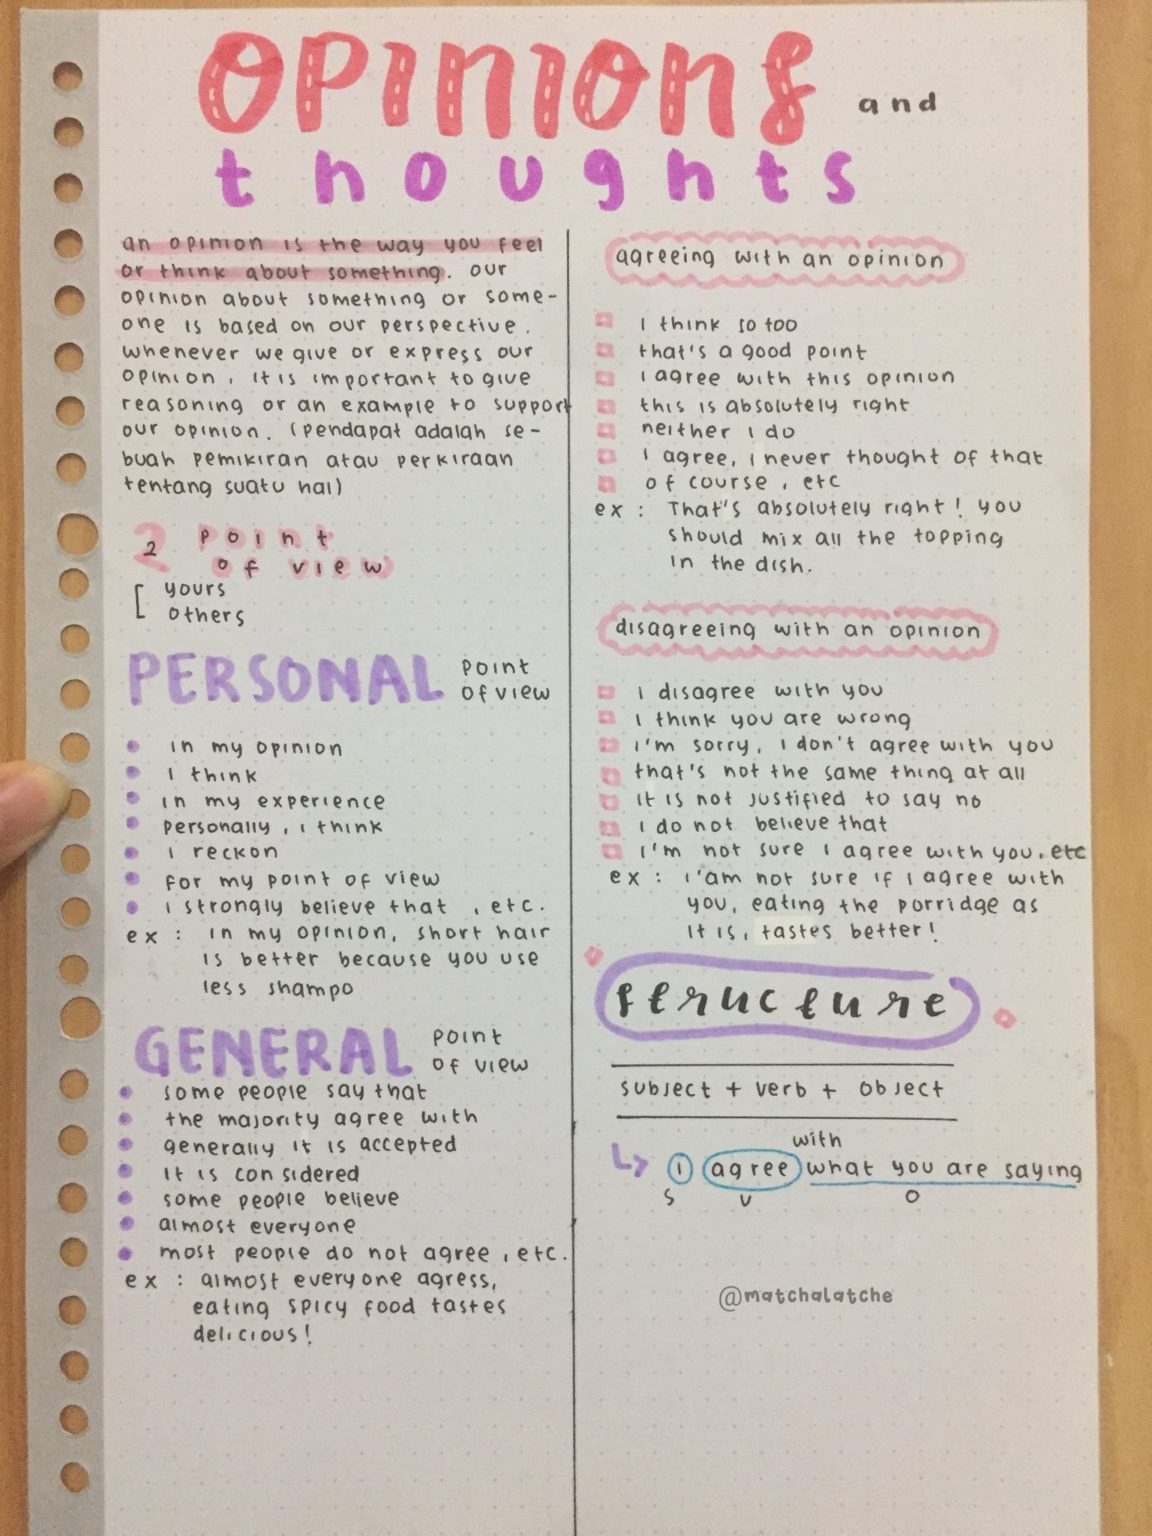 OPINIONS and
thoughts
an opinion is the way you feel
or think about something. our
opinion about something or some-
one is based on our perspective.
whenever we give or express our
opinion, it is important to give
reasoning or an example to support
our opinion. (pendapat adalah se-
buah pemikiran atau perkiraan
tentang suatu hal)
2 point
of view
yours
others
PERSONAL point
of view
in my opinion
I think
in my experience
personally, i think
I reckon
for my point of view
I strongly believe that , etc.
ex : in my opinion, short hair
is better because you use
less shampo
GENERAL point
of view
some people say that
the majority agree with
generally it is accepted
It is considered
some people believe
almost everyone
most people do not agree , etc.
ex : almost everyone agress,
eating spicy food tastes
delicious!
agreeing with an opinion
I think so too
that's a good point
I agree with this opinion
this is absolutely right
neither I do
I agree, i never thought of that
of course , etc
ex : That's absolutely right! you
should mix all the topping
in the dish.
disagreeing with an opinion
I disagree with you
I think you are wrong
I'm sorry, I don't agree with you
that's not the same thing at all
it is not justified to say no
I do not believe that
I'm not sure I agree with you, etc
ex : I'am not sure if I agree with
you, eating the porridge as
it is, tastes better!
structure
subject + verb + object
with
I agree what you are saying
S V O
@matchalatche